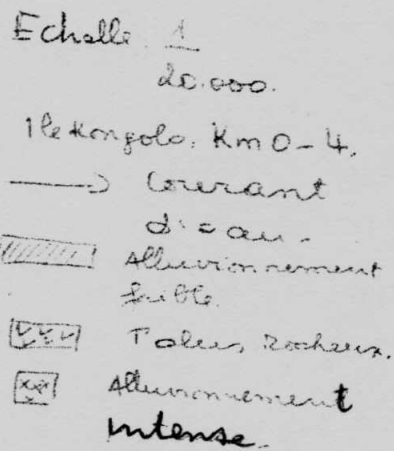 Echelle 1
20.000.
Ile Kongolo. Km 0-4.
Courant
d'eau.
Alluvionnement
faible.
Talus rocheux.
Alluvionnement
intense.